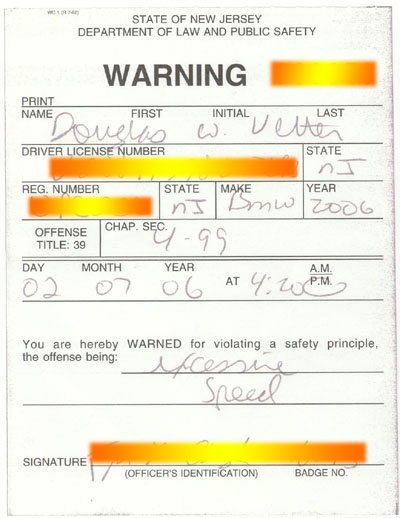 WC-1 (R 7-02)
STATE OF NEW JERSEY
DEPARTMENT OF LAW AND PUBLIC SAFETY
WARNING
PRINT
NAME FIRST INITIAL LAST
Douglas W. Vetter
DRIVER LICENSE NUMBER STATE
NJ
REG. NUMBER STATE MAKE YEAR
NJ BMW 2006
OFFENSE TITLE: 39 CHAP. SEC.
4-99
DAY MONTH YEAR A.M.
02 07 06 AT 4:20 P.M.
You are hereby WARNED for violating a safety principle,
the offense being:
excessive
Speed
SIGNATURE
(OFFICER'S IDENTIFICATION) BADGE NO.